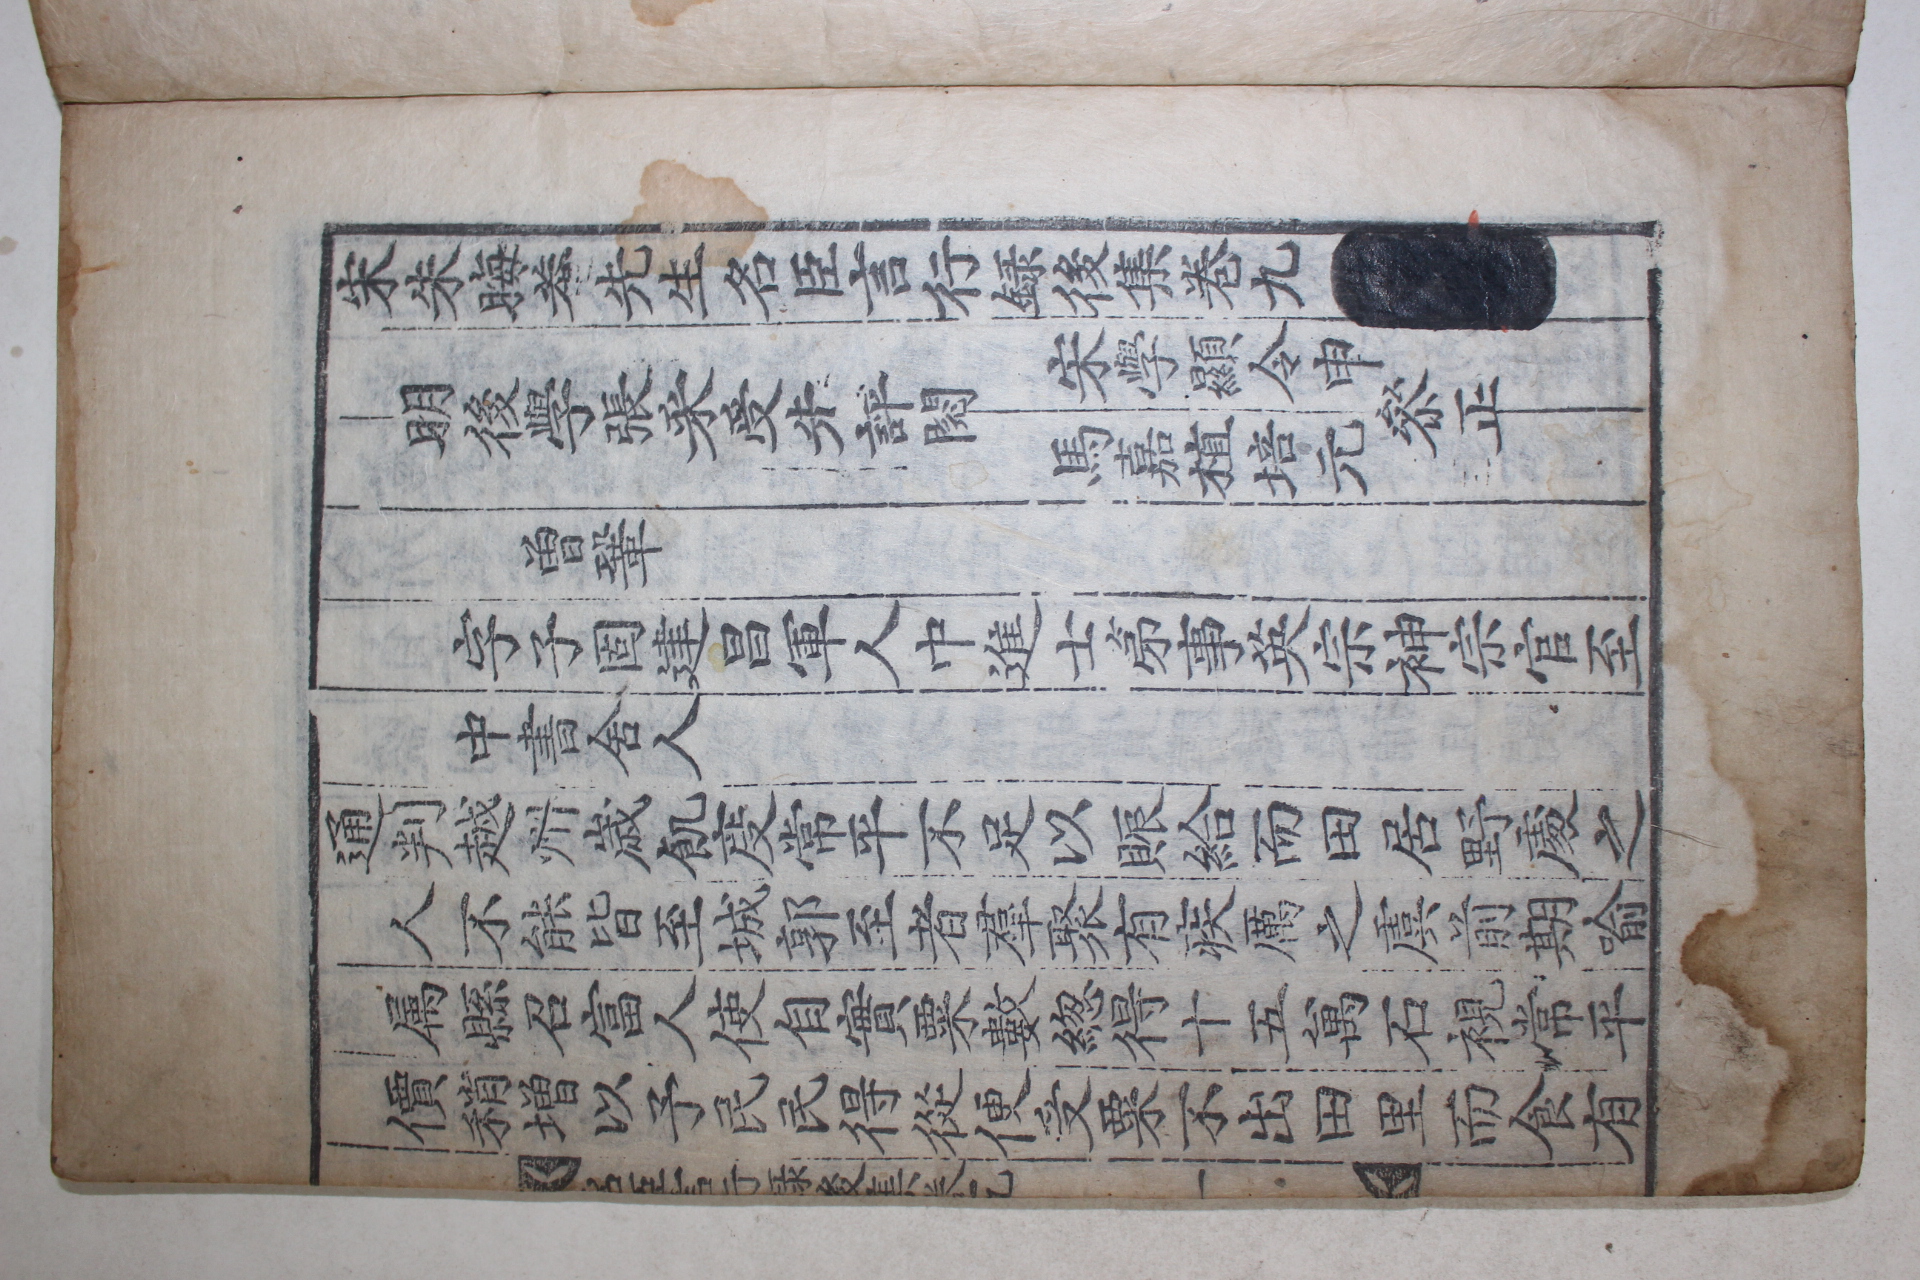 宋朱晦菴先生名臣言行錄後集卷九
明後學張采受先評閱
宋學顯令申
馬嘉植培元
參正
曾鞏
字子固建昌軍人中進士第事英宗神宗官至
中書舍人
通判越州歲飢度常平不足以賑給而田居野處之
人不能皆至城郭至者羣聚有疾癘之虞前期喻
屬縣召富人使自實粟數緫得十五萬石視常平
價稍增以予民民得從便受粟不出田里而食有
名臣言行錄後集卷九 一